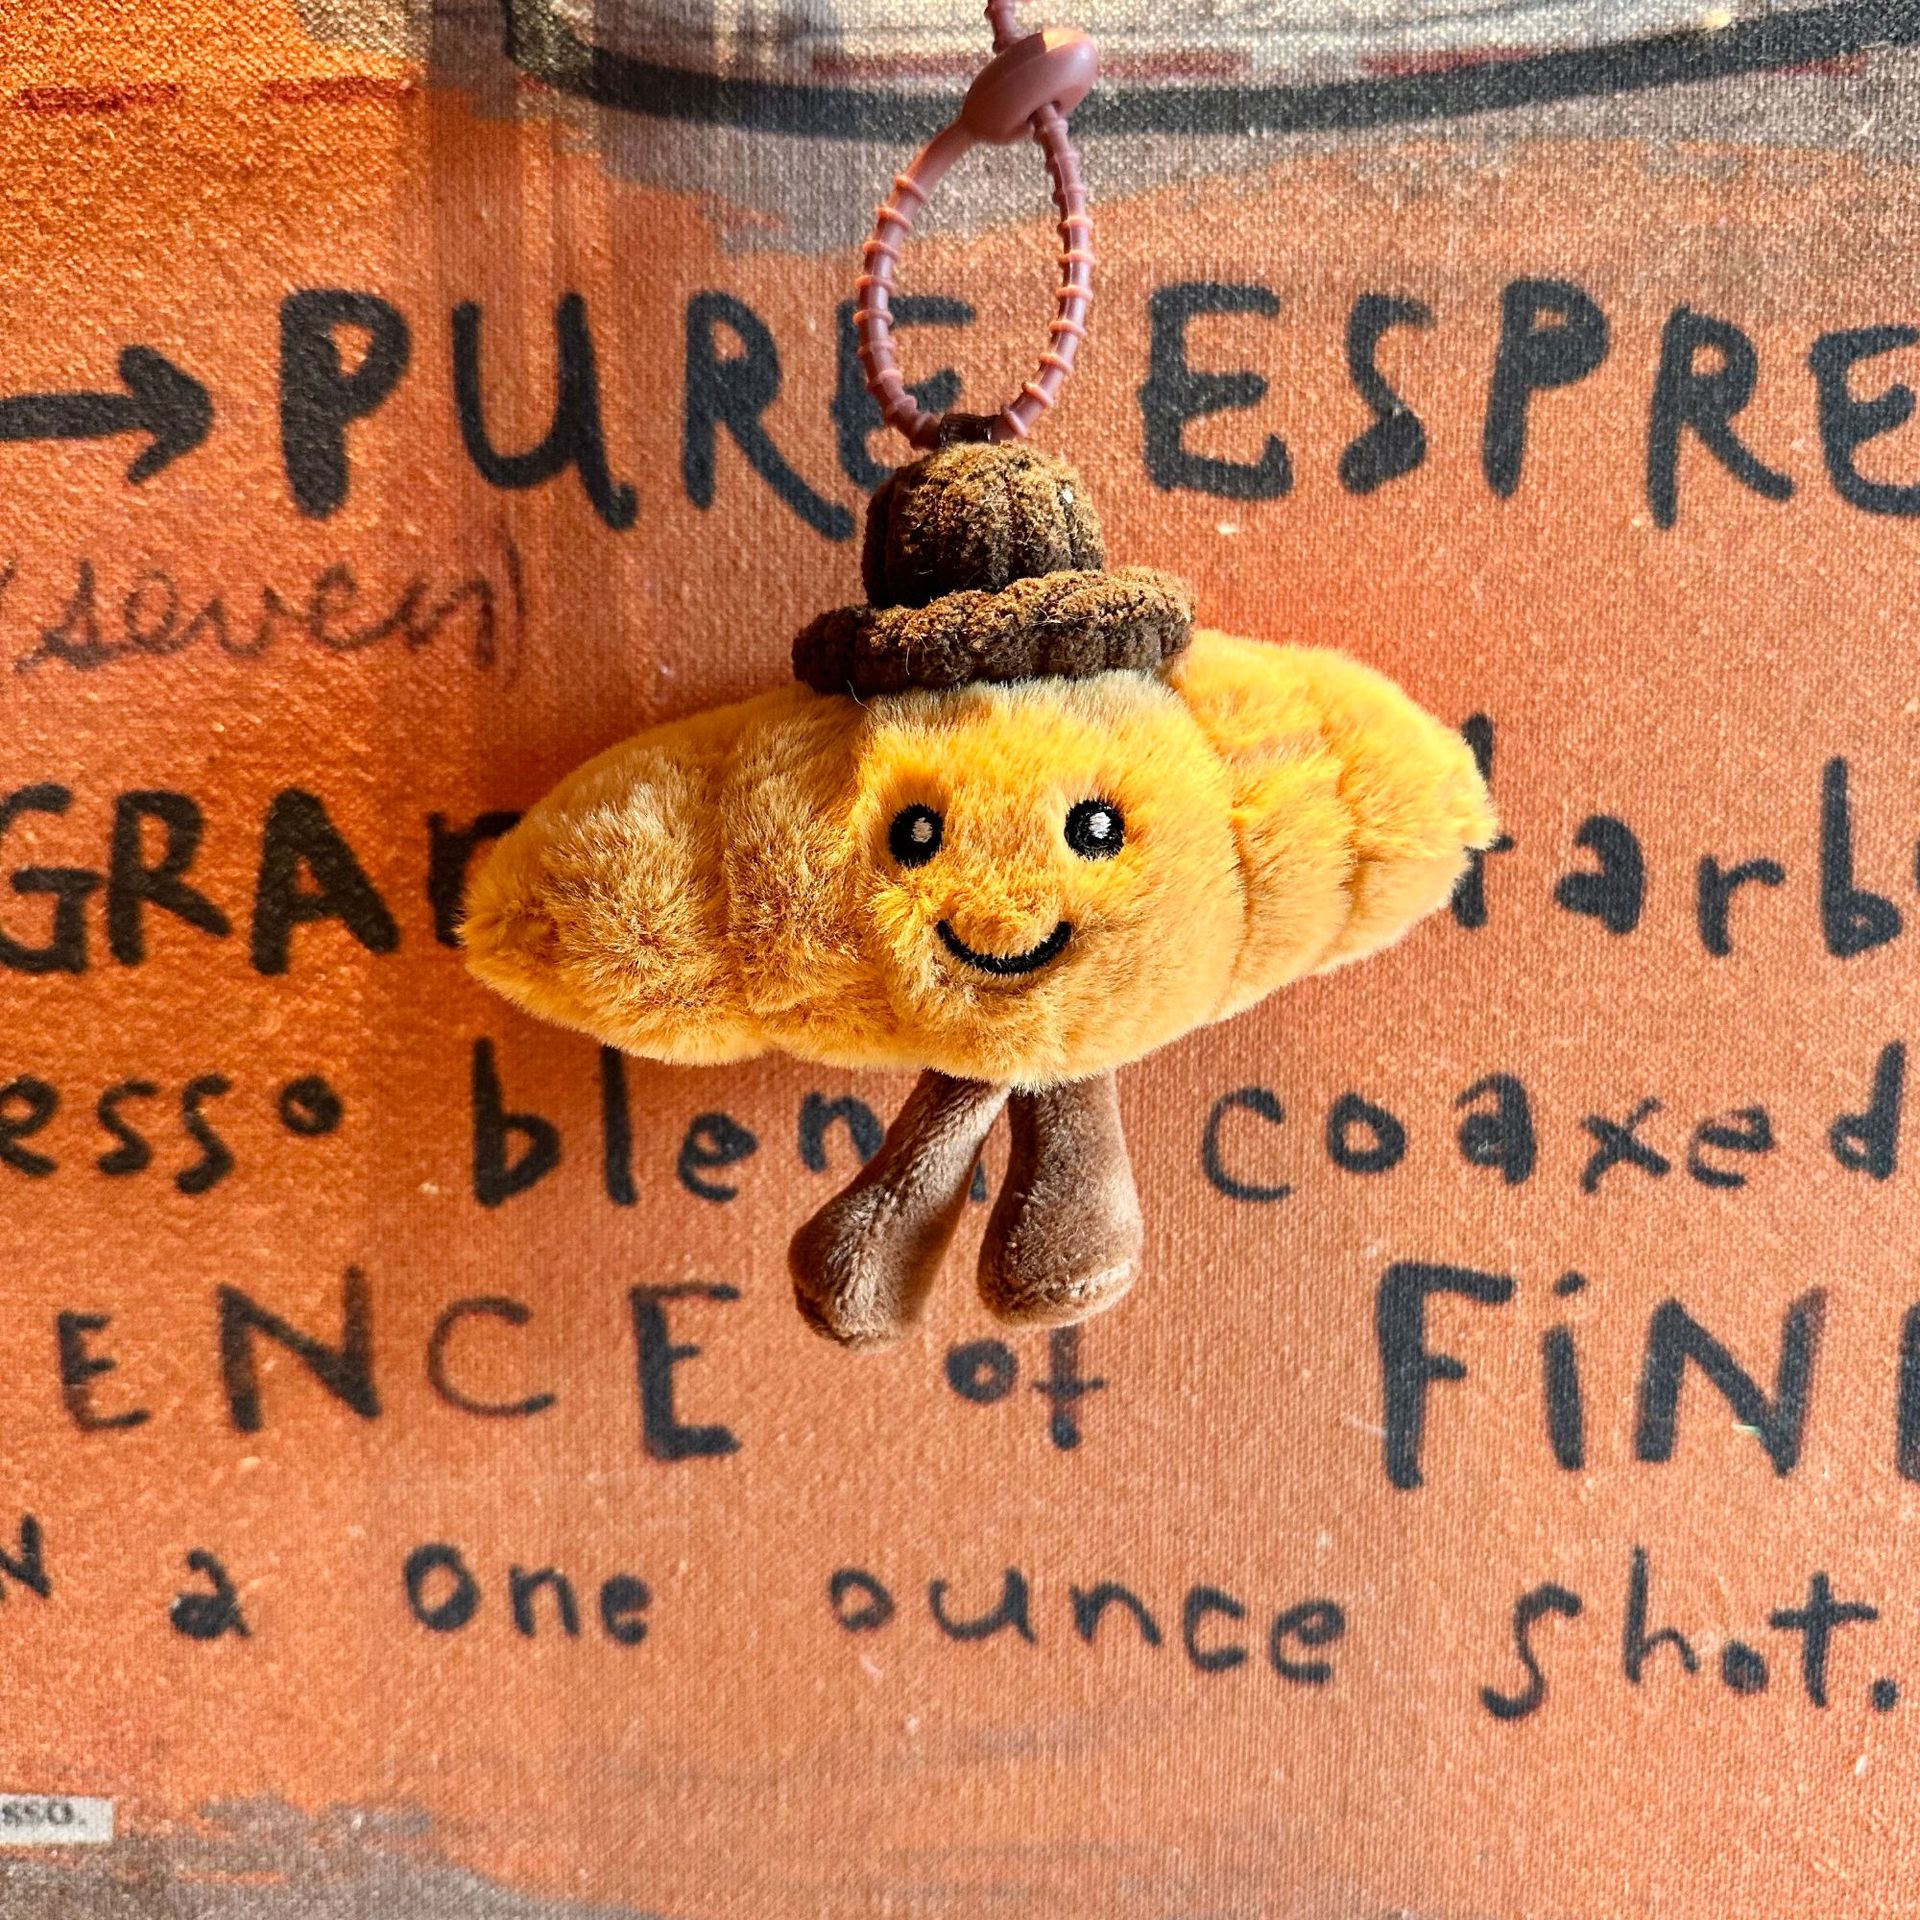 → PURE ESPRE
(seven)
GRA tarb
esso blen coaxed
ENCE of FiN
N a one ounce shot.
sso.